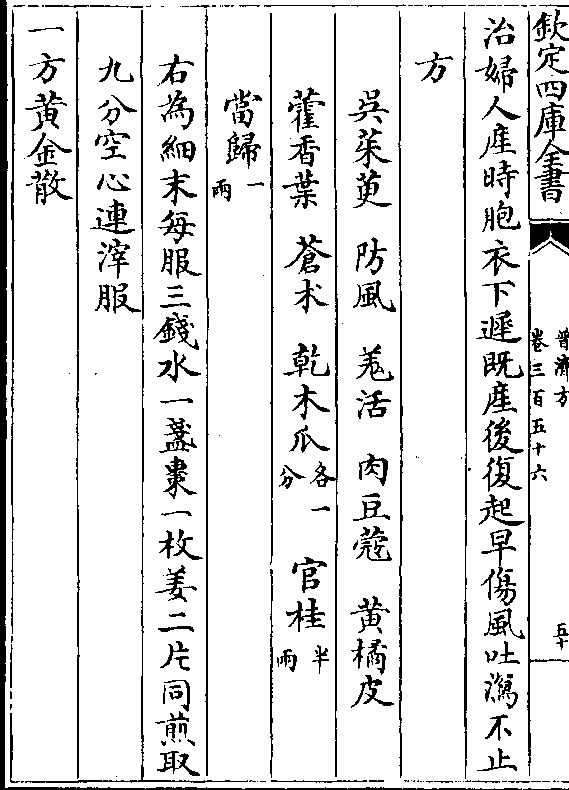 欽定四庫全書
普濟方
卷三百五十六
五十
治婦人産時胞衣下遲既産後復起早傷風吐瀉不止
方
吳茱萸 防風 羌活 肉豆蔻 黄橘皮
藿香葉 蒼朮 乾木瓜各一分 官桂半兩
當歸一兩
右為細末每服三錢水一盞棗一枚姜二片同煎取
九分空心連滓服
一方黄金散